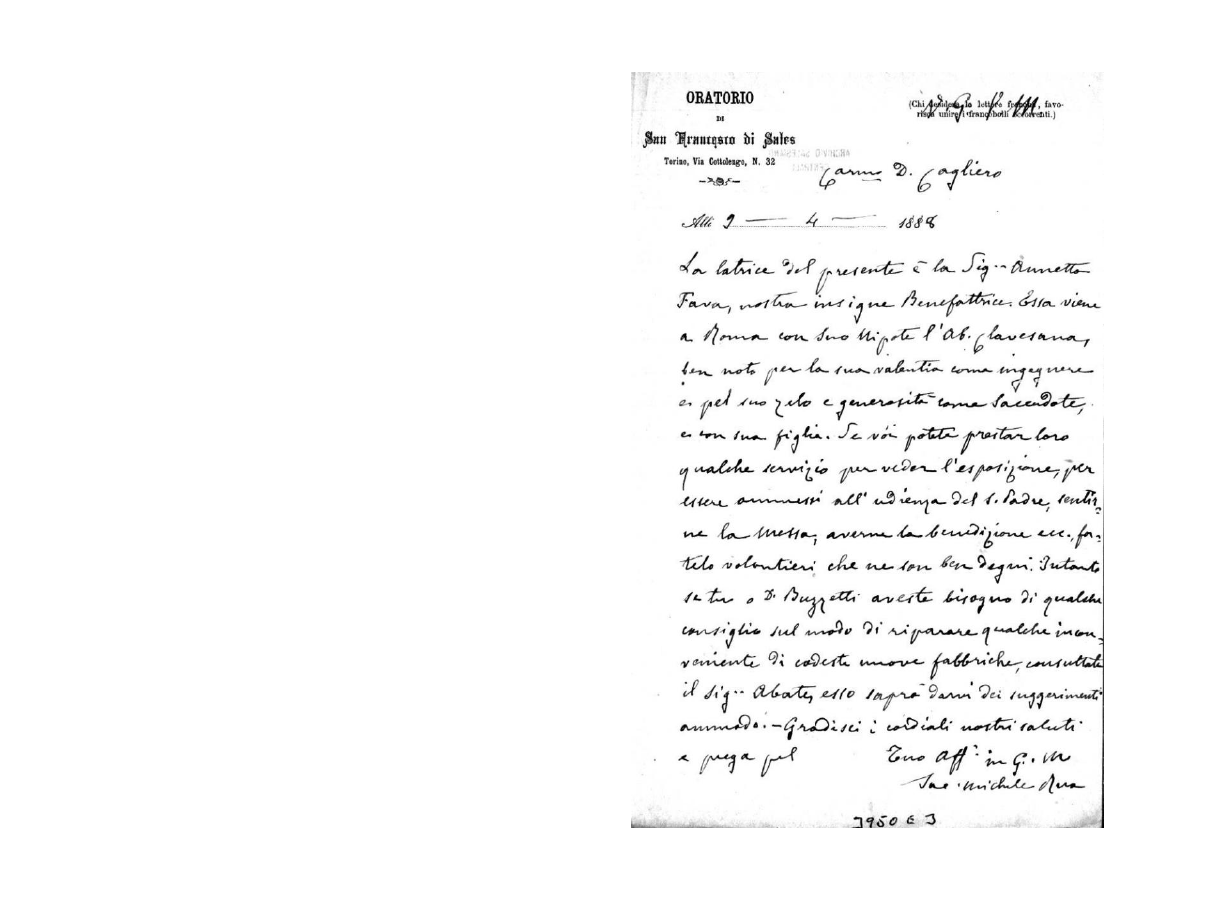 ORATORIO
DI
San Francesco di Sales
Torino, Via Cottolengo, N. 32
(Chi desidera le lettere franche, favo-
risca unire i francobolli occorrenti.)
ARCHIVIO SALESIANO
CENTRALE
V. G. M.
Carmo D. Cagliero
Alli 9 — 4 — 1888
La latrice del presente è la Sig.ra Annetta
Fava, nostra insigne Benefattrice. Essa viene
a Roma con suo Nipote l'Ab. Clavesana,
ben noto per la sua valentia come ingegnere
e pel suo zelo e generosità come Sacerdote,
e con sua figlia. Se voi potete prestar loro
qualche servizio per veder l'esposizione, per
essere ammessi all'udienza del S. Padre, sentir-
ne la Messa, averne la benedizione ecc., fa-
telo volontieri che ne son ben degni. Intanto
se tu o D. Buzzetti aveste bisogno di qualche
consiglio sul modo di riparare qualche incon-
veniente di codeste nuove fabbriche, consultate
il sig.r Abate, esso saprà darvi dei suggerimenti
ammodo. - Gradisci i cordiali nostri saluti
e prega pel Tuo Aff. in G. M
Sac. Michele Rua
3950 E 3